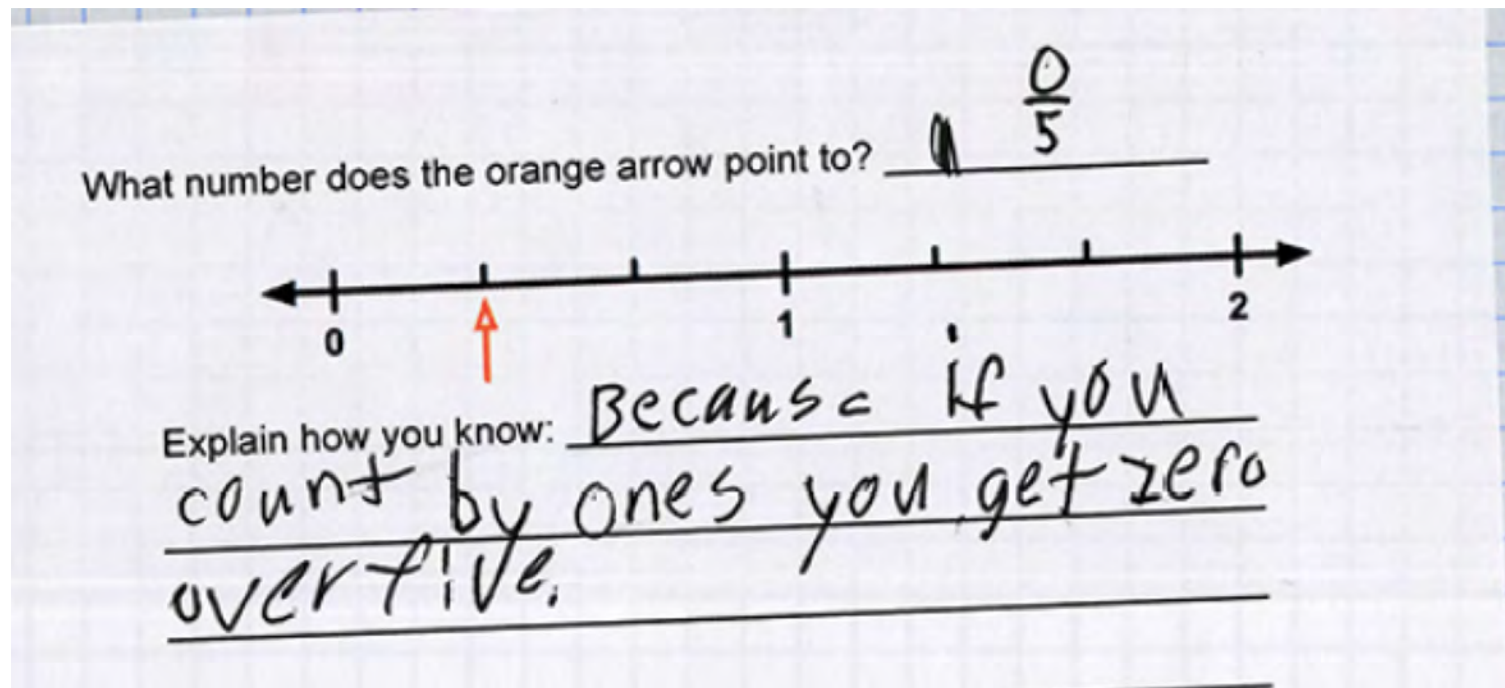 0/5
What number does the orange arrow point to?
0 1 2
Explain how you know: Because if you
count by ones you get zero
over five.